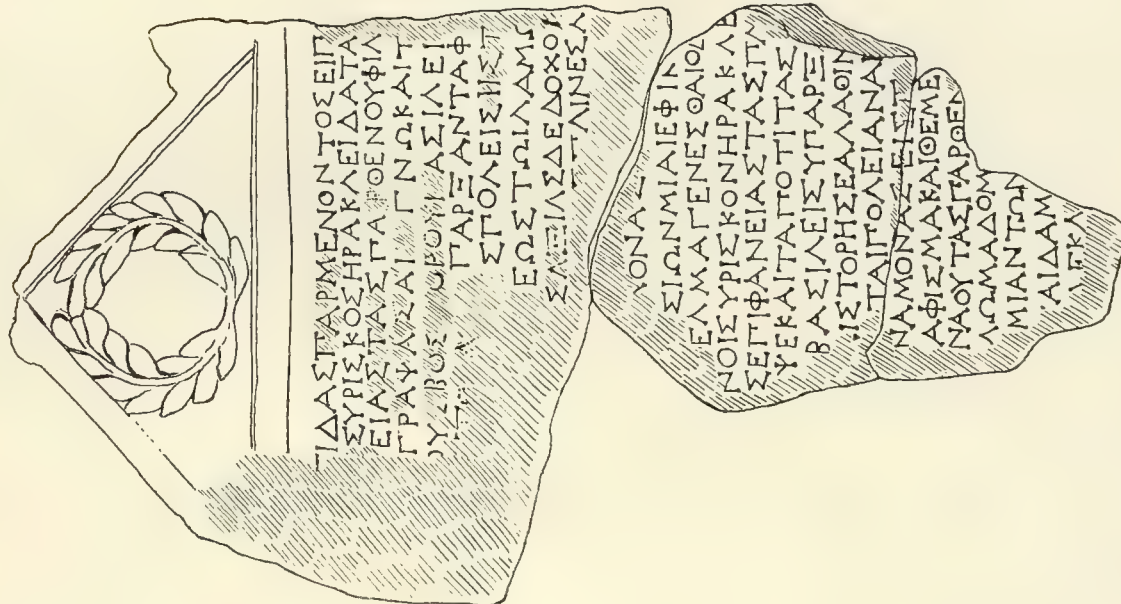 ΙΔΑΣΠΑΡΜΕΝΟΝΤΟΣΕΙΠ
ΣΥΡΙΣΚΟΣΗΡΑΚΛΕΙΔΑΤΑ
ΕΙΑΣΤΑΣΠΑΡΘΕΝΟΥΦΙΛ
ΓΡΑΨΑΣΑΙ ΓΝΩΚΑΙΤ
ΟΥΣ ΒΟΣ ΟΡΟΥ ΑΣΙΛΕΙ
ΠΑΡΞΑΝΤΑΦ
ΣΠΟΛΕΙΣΗΣΤ
ΕΩΣΤΩΙΔΑΜΩ
ΔΕΔΟΧΟΙ
ΑΙΝΕΣΑ
ΙΟΝΑΣ
ΣΙΩΝΜΙΑΙΕΦΙΚ
ΕΛΜΑΓΕΝΕΣΘΑΙΟΔ
ΝΟΙΣΥΡΙΣΚΟΝΗΡΑΚΛΕ
ΣΕΠΙΦΑΝΕΙΑΣΤΑΣΠΑ
ΨΕΚΑΙΤΑΠΟΤΙΤΑΣ
ΒΑΣΙΛΕΙΣΥΠΑΡΞ
ΙΣΤΟΡΗΣΕΑΛΑΘΙΝ
ΤΑΙΠΟΛΕΙΑΝΑΙ
ΝΑΜΟΝΑΣΕΙΣΤ
ΑΦΙΣΜΑΚΑΙΘΕΜΕ
ΝΑΟΥΤΑΣΠΑΡΘΕΝ
ΛΩΜΑΔΟΜ
ΜΙΑΝΤΩ
ΑΙΔΑΜ
ΕΓΚΛ